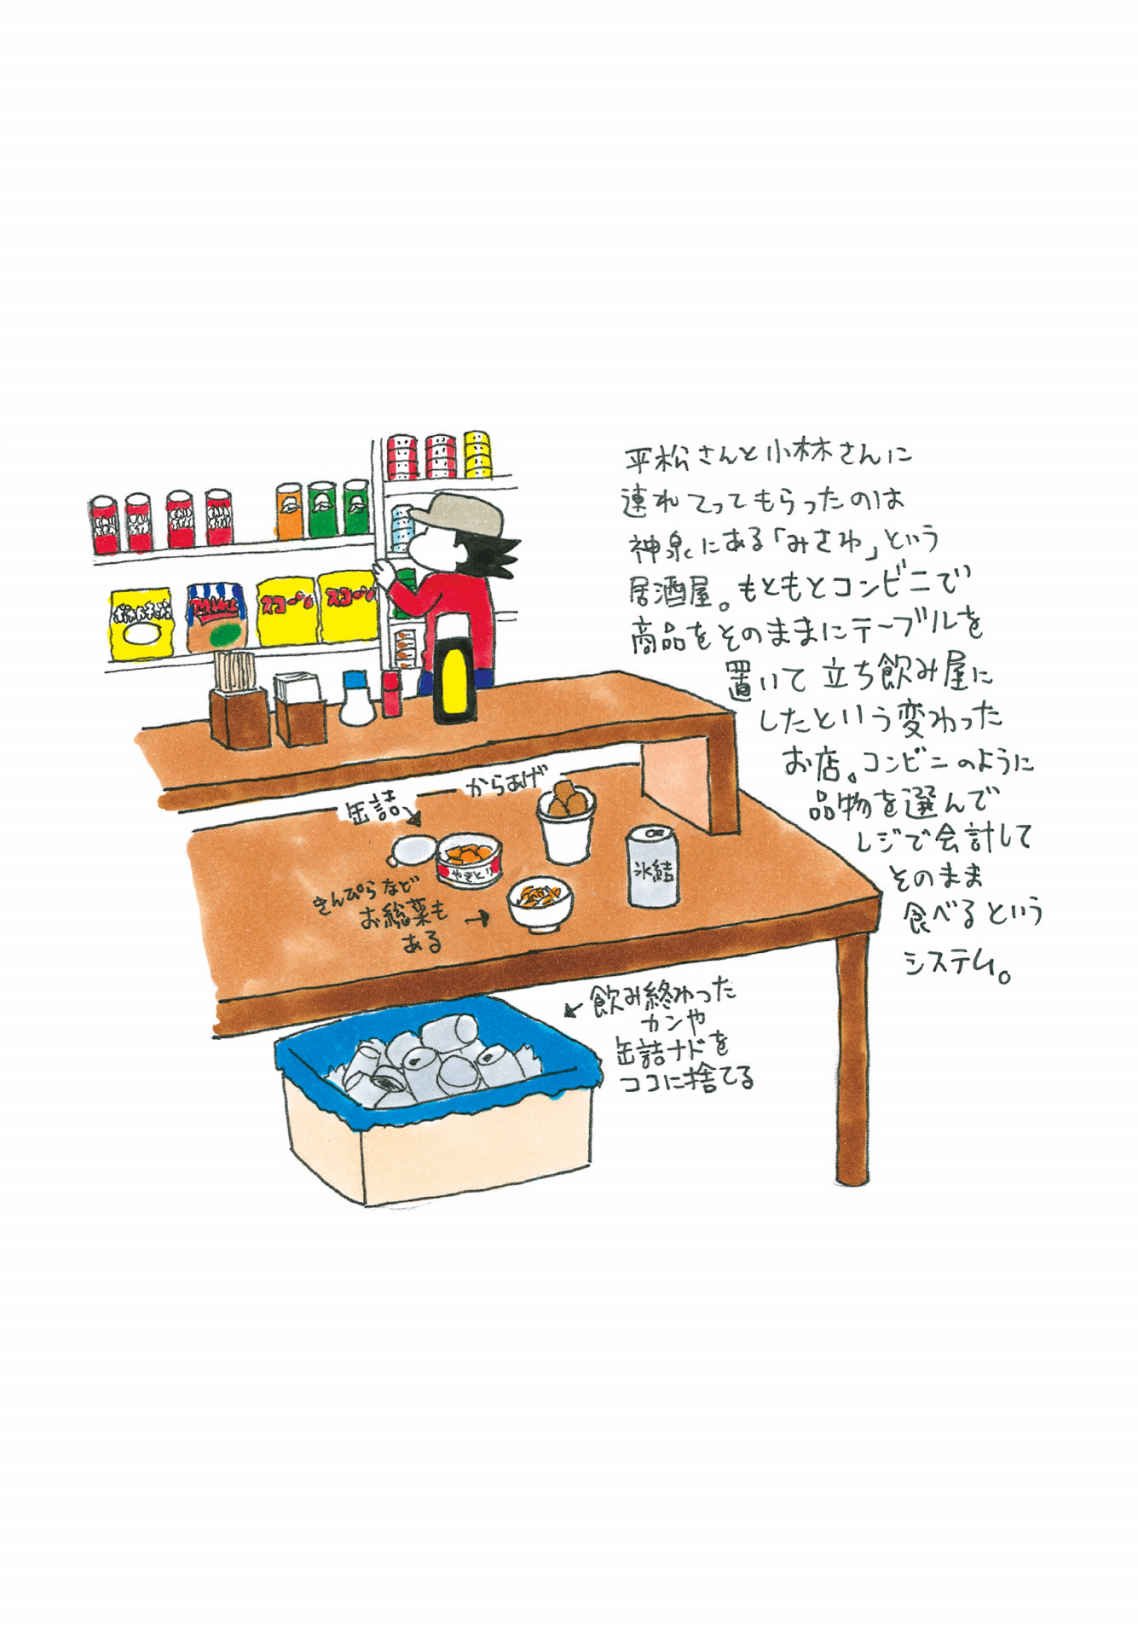 平松さんと小林さんに
連れてってもらったのは
神泉にある「みさわ」という
居酒屋。もともとコンビニで
商品をそのままにテーブルを
置いて立ち飲み屋に
したという変わった
お店。コンビニのように
品物を選んで
レジで会計して
そのまま
食べるという
システム。
スコーン
スコーン
からあげ
缶詰
やきとり
氷結
きんぴらなど
お総菜も
ある
飲み終わった
カンや
缶詰ナドを
ココに捨てる